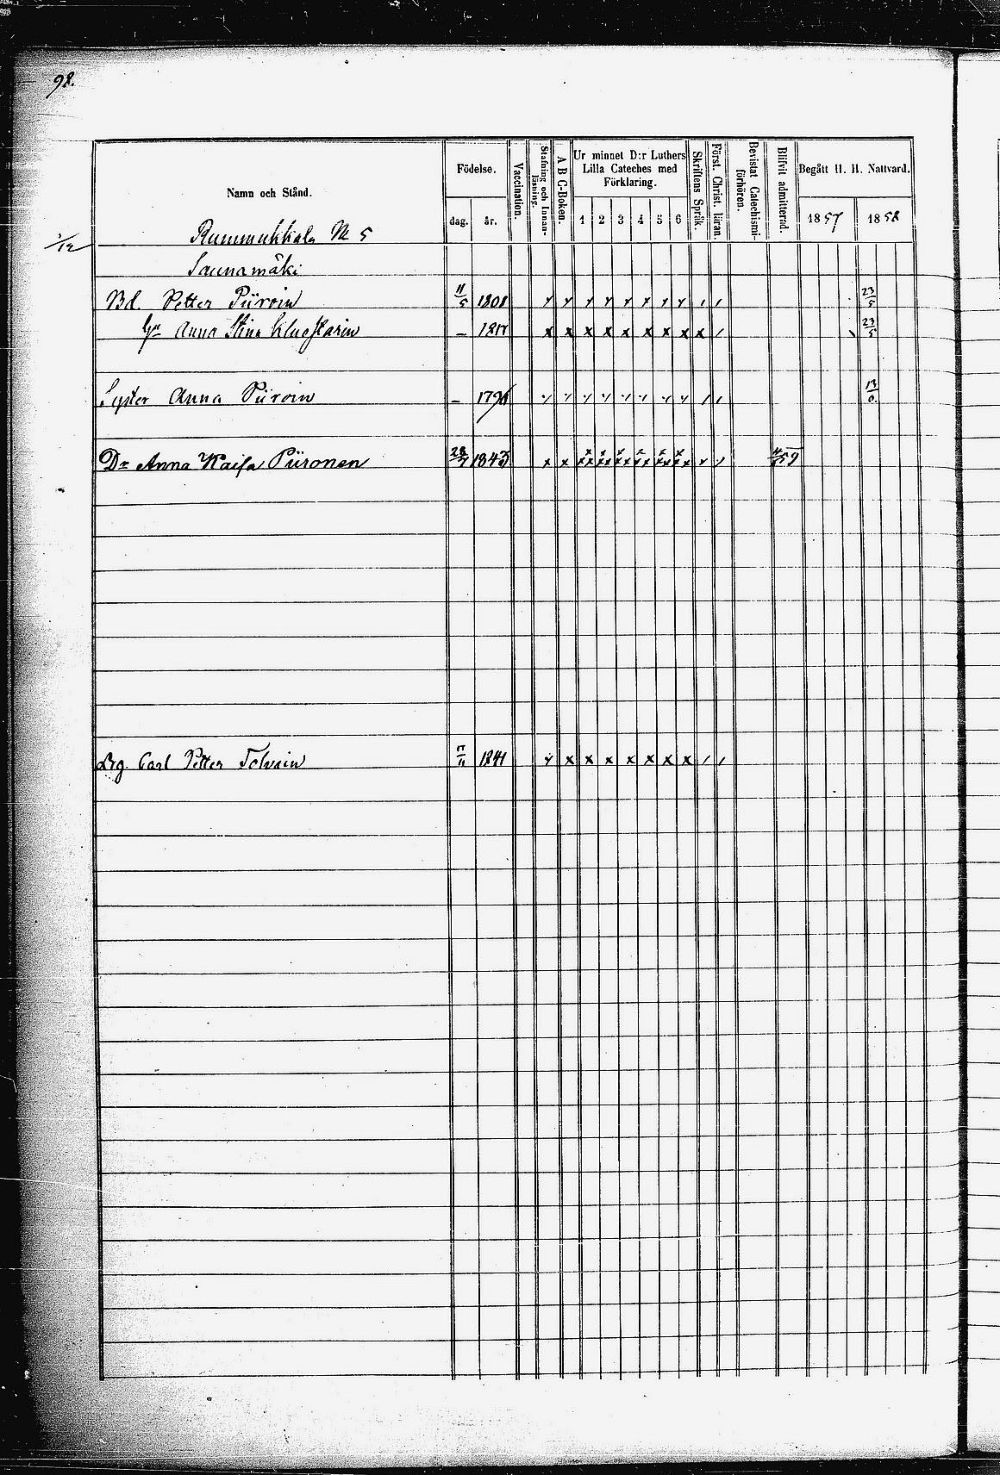 98.
Namn och Stånd. Födelse. dag. år. Vaccination. Stafning och Innanläsning. A B C-Boken. Ur minnet D:r Luthers Lilla Cateches med Förklaring. 1 2 3 4 5 6 Skriftens Språk. Först. Christ. läran. Bevistat Catechismiförhören. Blifvit admitterad. Begått H. H. Nattvard. 1857 1858
1/12 Rummukkala № 5
Saunamäki
Bd. Petter Piiroin 11/5 1808 23/5
Anna Stina 23/5
Syster Anna Piiroin –
Dr Anna Kaisa Piironen 1843 59
Drg. Carl Petter Tolvain 1841